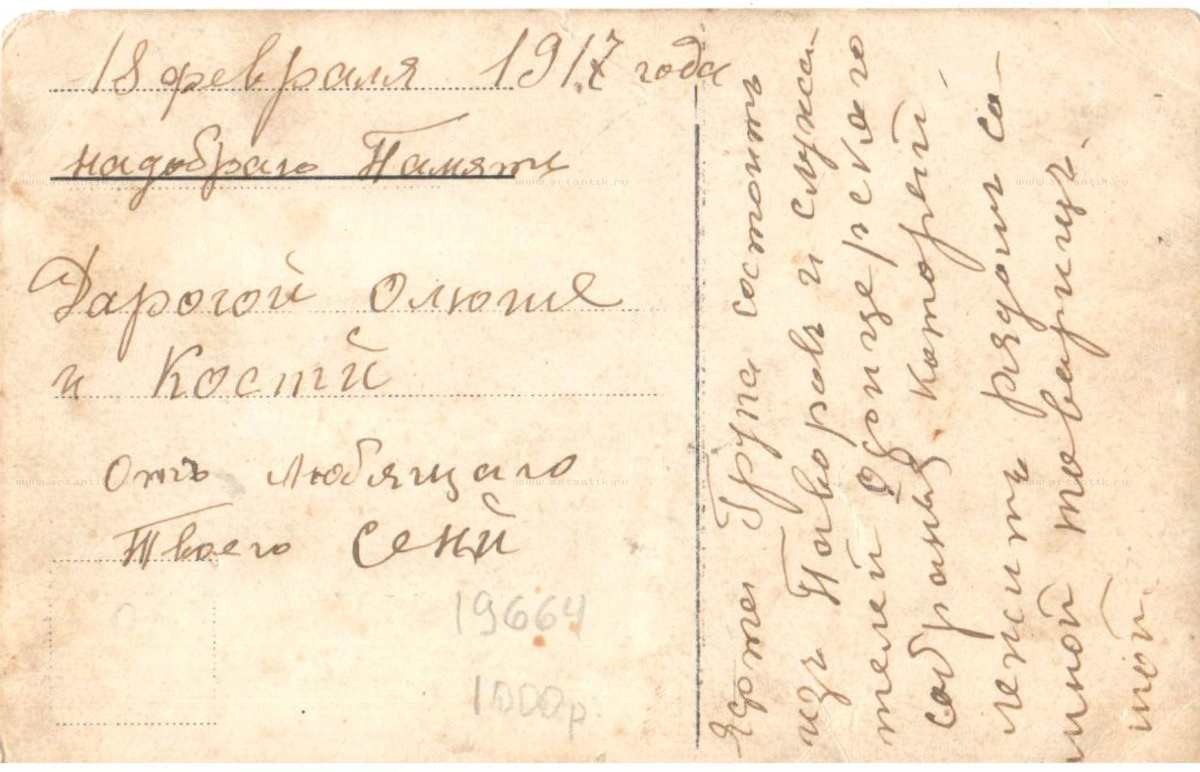 18 февраля 1917 года
надобраго Памяти
Дарогой Олюше
и Костй
Отъ Любящаго
Твоего Сенй
19664
1000р
Група састоитъ
изъ Паворавъ и служа-
телей Офицерскаго
собранія каторый
лежитъ рядом са
мной товарищъ
мой.
www.artantik.ru